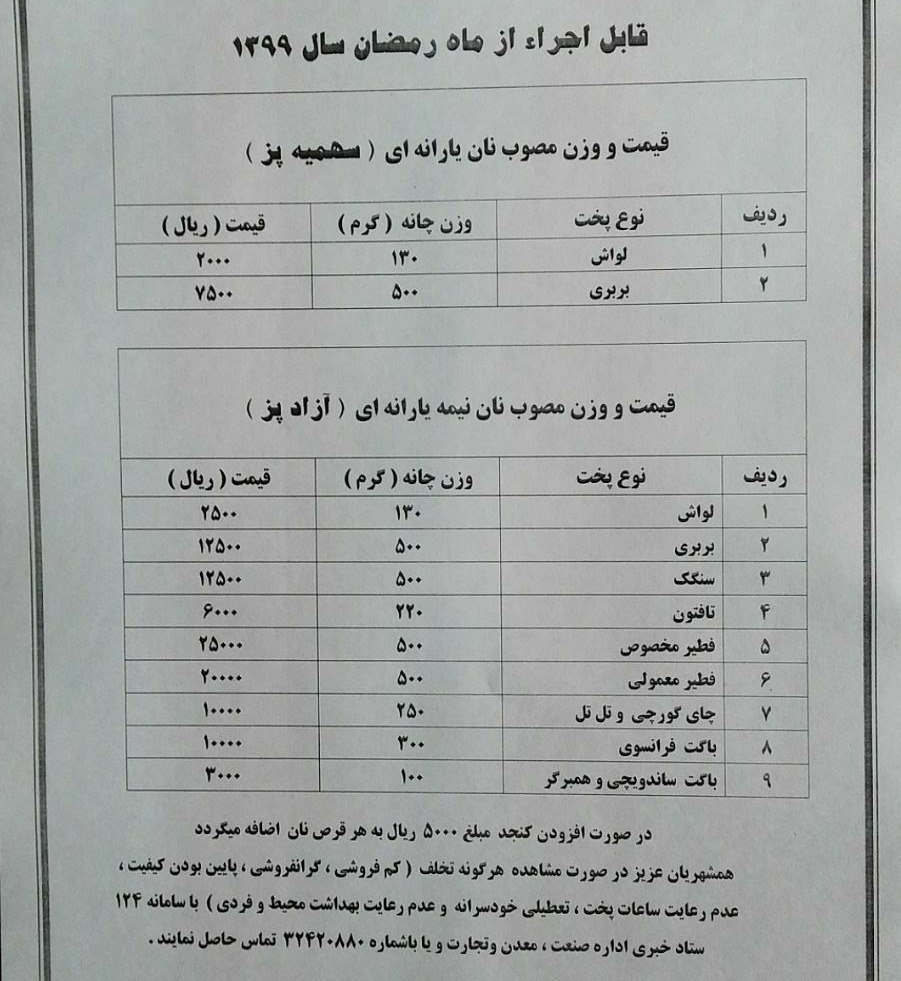 قابل اجراء از ماه رمضان سال ۱۳۹۹
قیمت و وزن مصوب نان یارانه ای ( سهمیه پز )
ردیف نوع پخت وزن چانه ( گرم ) قیمت ( ریال )
۱ لواش ۱۳۰ ۲۰۰۰
۲ بربری ۵۰۰ ۷۵۰۰
قیمت و وزن مصوب نان نیمه یارانه ای ( آزاد پز )
ردیف نوع پخت وزن چانه ( گرم ) قیمت ( ریال )
۱ لواش ۱۳۰ ۲۵۰۰
۲ بربری ۵۰۰ ۱۲۵۰۰
۳ سنگک ۵۰۰ ۱۲۵۰۰
۴ تافتون ۲۲۰ ۶۰۰۰
۵ فطیر مخصوص ۵۰۰ ۲۵۰۰۰
۶ فطیر معمولی ۵۰۰ ۲۰۰۰۰
۷ چای گورچی و تل تل ۲۵۰ ۱۰۰۰۰
۸ باگت فرانسوی ۳۰۰ ۱۰۰۰۰
۹ باگت ساندویچی و همبرگر ۱۰۰ ۳۰۰۰
در صورت افزودن کنجد مبلغ ۵۰۰۰ ریال به هر قرص نان اضافه میگردد
همشهریان عزیز در صورت مشاهده هرگونه تخلف ( کم فروشی ، گرانفروشی ، پایین بودن کیفیت ،
عدم رعایت ساعات پخت ، تعطیلی خودسرانه و عدم رعایت بهداشت محیط و فردی ) با سامانه ۱۲۴
ستاد خبری اداره صنعت ، معدن وتجارت و یا باشماره ۳۲۴۲۰۸۸۰ تماس حاصل نمایند .